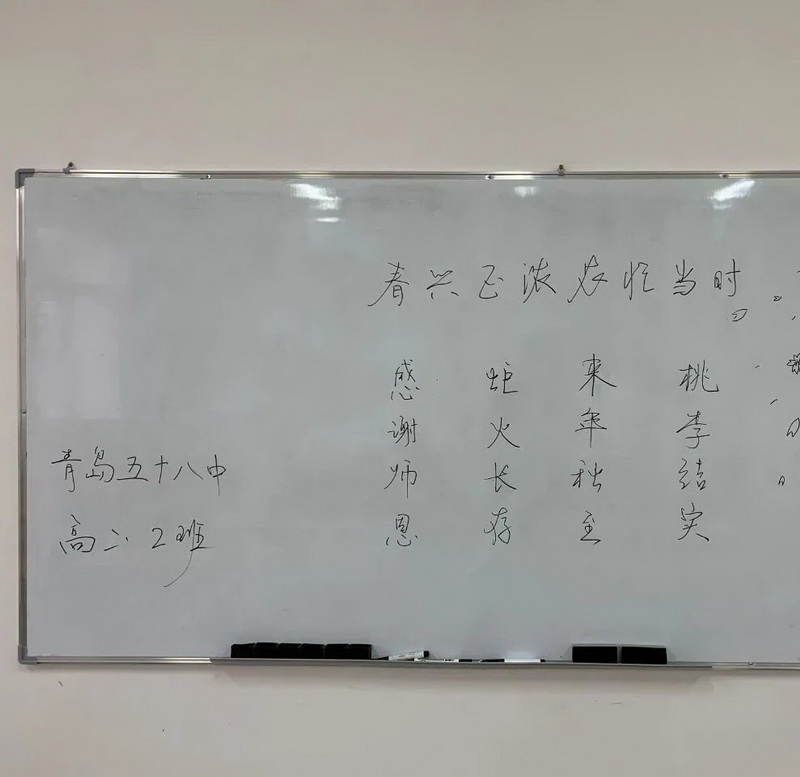 春兴正浓农忙当时
桃李结实
来年秋至
炬火长存
感谢师恩
青岛五十八中
高二.2班